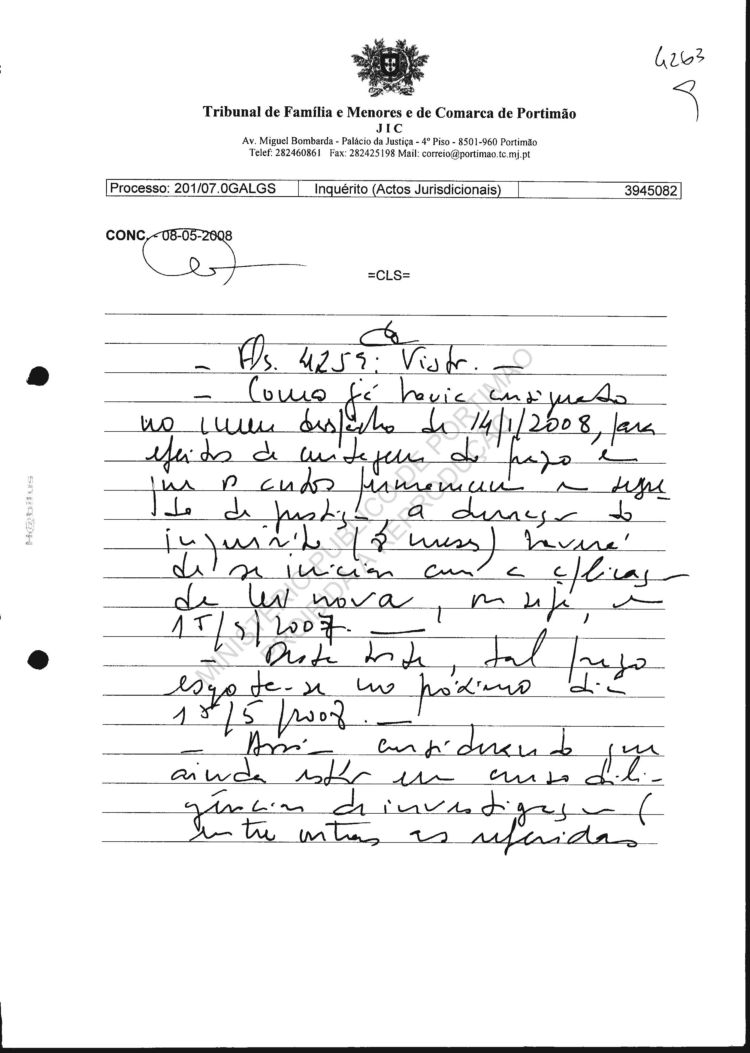 4263
Tribunal de Família e Menores e de Comarca de Portimão
J I C
Av. Miguel Bombarda - Palácio da Justiça - 4º Piso - 8501-960 Portimão
Telef: 282460861 Fax: 282425198 Mail: correio@portimao.tc.mj.pt
Processo: 201/07.0GALGS Inquérito (Actos Jurisdicionais) 3945082
CONC. - 08-05-2008
=CLS=
- Fls. 4259: Visto. -
- Como já havia consignado
no meu despacho de 14/1/2008, para
efeitos de contagem do prazo em
que os autos permanecem em segre-
do de justiça, a duração do
inquérito (8 meses) haverá
de se iniciar com a aplicação
da lei nova, ou seja, em
15/9/2007.
- Deste modo, tal prazo
esgota-se no próximo dia
15/5/2008.
- Assim considerando que
ainda estão em curso dili-
gências de investigação (
entre outras as referidas
MINISTÉRIO PÚBLICO DE PORTIMÃO
PROIBIDA A REPRODUÇÃO
Habilus